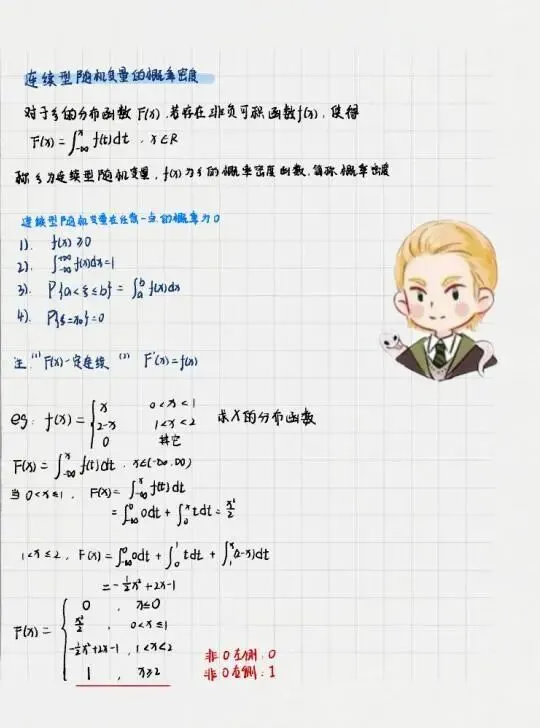 连续型随机变量的概率密度
对于ξ的分布函数F(x),若存在非负可积函数f(x),使得
F(x)=∫_{-∞}^{x} f(t)dt , x∈R
称ξ为连续型随机变量,f(x)为ξ的概率密度函数,简称概率密度
连续型随机变量在任意一点的概率为0
1). f(x)≥0
2). ∫_{-∞}^{+∞} f(x)dx=1
3). P{a<ξ≤b}=∫_{a}^{b} f(x)dx
4). P{ξ=x₀}=0
注:⁽¹⁾F(x)一定连续 ⁽²⁾ F'(x)=f(x)
eg: f(x)={ x 0<x<1
2-x 1<x<2 求X的分布函数
0 其它
F(x)=∫_{-∞}^{x} f(t)dt , x∈(-∞,∞)
当0<x≤1, F(x)=∫_{-∞}^{x} f(t)dt
=∫_{-∞}^{0} 0dt+∫_{0}^{x} tdt=x²/2
1<x≤2, F(x)=∫_{-∞}^{0} 0dt+∫_{0}^{1} tdt+∫_{1}^{x}(2-x)dt
=-½x²+2x-1
F(x)={ 0 , x≤0
x²/2 , 0<x≤1
-½x²+2x-1 , 1<x<2 非0左侧:0
1 , x≥2 非0右侧:1